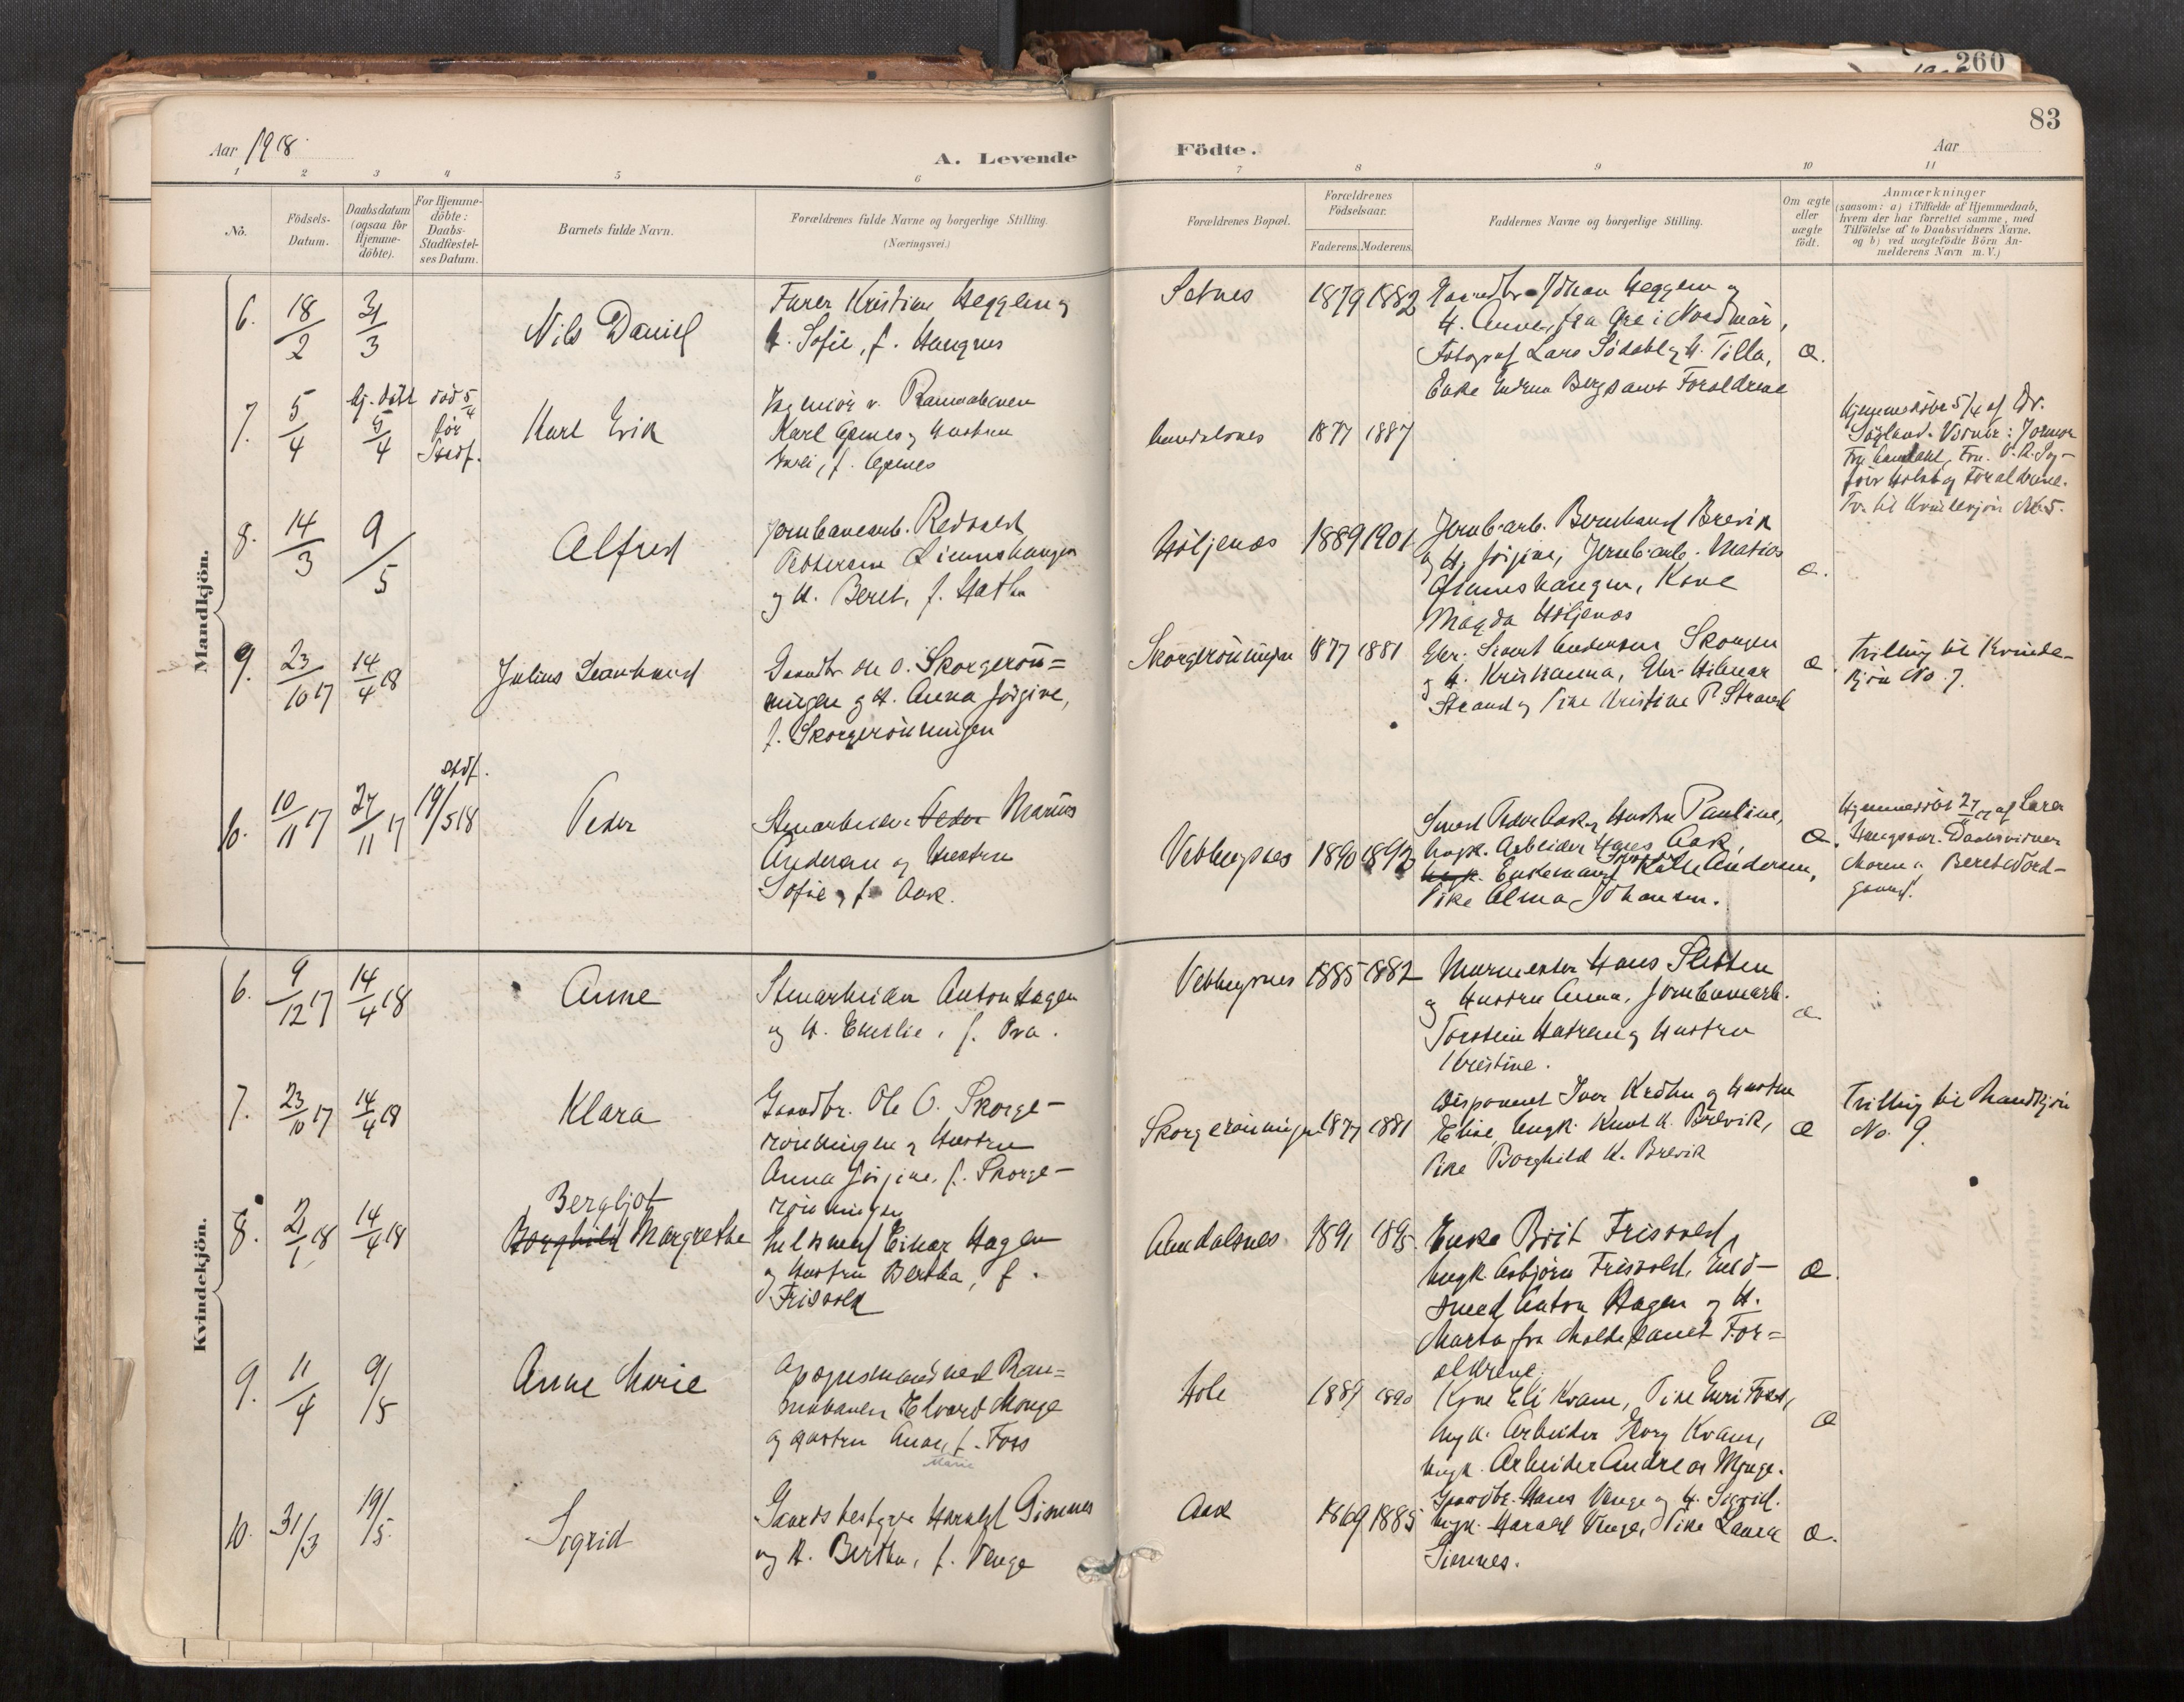 260
83
Aar 1918
A. Levende
Födte.
Aar
1 2 3 4 5 6 7 8 9 10 11
No.
Födsels-
Datum.
Daabsdatum
(ogsaa for
Hjemme-
döbte).
For Hjemme-
döbte:
Daabs-
Stadfæstel-
ses Datum.
Barnets fulde Navn.
Forældrenes fulde Navne og borgerlige Stilling.
(Næringsvei.)
Forældrenes Bopæl.
Forældrenes
Födselsaar.
Faderens. Moderens.
Faddernes Navne og borgerlige Stilling.
Om ægte
eller
uægte
födt.
Anmærkninger
(saasom: a) i Tilfælde af Hjemmedaab,
hvem der har forrettet samme, med
Tilföielse af to Daabsvidners Navne.
og b) ved uægtefödte Börn An-
melderens Navn m.V.)
Mandkjön.
6.
18/2
31/3
Nils Daniel
Furer Kristian Heggem og
H. Sofie, f. Haugnes
Setnes
1879 1882
Gaardbr. Johan Heggem og
H. Anne, fra Öre i Nordmör,
Fotograf Lars Södahl og H. Tilla,
Enke Berg samt Forældrene
Æ.
7.
5/4
hj. döbt
5/4
död 5/4
för
Stadf.
Karl Erik
Ingeniör v. Raumabanen
Karl og Hustru
f.
Aandalsnes
1877 1887
Hjemmedöbt 5/4 af Dr.
Vidner: Jormor
Fru Fru
og Forældrene.
Tv. til Kvindekjön No 5.
8.
14/3
9/5
Alfred
Jernbanearb. Redvald
Pettersen
og H. Beret, f. Hatle
Höljenes
1889 1901
Jernb.arb. Bernhard Brevik
og H. Jörgine, Jernb.arb. Matias
Kone
Magda Höljenes
Æ.
9.
23/10 17
14/4 18
Julius Leonhard
Gaardbr. Ole O. Skorgerön=
ningen og H. Anna Jörgine,
f. Skorgerönningen
Skorgerönningen
1877 1881
Gbr. Sivert Andersen Skorgen
og H. Kristianna, Gbr. Hilmar
Strand og Pike Kristine P. Strand
Æ.
Tvilling til Kvinde-
kjön No. 7.
10.
10/11 17
27/11 17
stdf.
19/5 18
Peder
Stenarbeider Peder Marius
Andersen og Hustru
Sofie, f. Aak.
Veblungsnes
1890 1892
Smed Peder Aak og Hustru Pauline,
Ungk. Arbeider Hans Aak,
Ungk. Enkemand Andersen,
Pike Alma Johansen.
Æ.
Hjemmedöbt 27/11 17 af Lærer
Daabsvidner
Maren og Beret
Kvindekjön.
6.
9/12 17
14/4 18
Anne
Stenarbeider Anton Hagen
og H. Emilie, f. Bra.
Veblungsnes
1885 1882
Murmester Hans Sletten
og Hustru Anna, Jernbanearb.
Torstein Hatrem og Hustru
Kristine.
Æ.
7.
23/10 17
14/4 18
Klara
Gaardbr. Ole O. Skorge-
rönningen og Hustru
Anna Jörgine, f. Skorge-
rönningen
Skorgerönningen
1877 1881
Disponent Iver Kröhn og Hustru
Elise, Ungk. Knut K. Brevik,
Pike Borghild K. Brevik
Æ
Tvilling til Mandkjön
No. 9.
8.
2/1 18
14/4 18
Bergljot
Borghild Margrethe
Guldsmed Einar Hagen
og Hustru Bertha, f.
Frisvold
Aandalsnes
1891 1895
Enke Brit Frisvold,
Ungk. Asbjörn Frisvold, Guld-
smed Anton Hagen og H.
Marta fra Molde samt For=
ældrene.
Æ.
9.
11/4
9/5
Anne Marie
Opsynsmand ved Rau=
mabanen Edvard Monge
og Hustru Anne, f. Foss
Marie
Hole
1889 1890
Kone Eli Kvam, Pike Guri Foss,
Ungk. Arbeider Georg Kvam,
Ungk. Arbeider Andreas Monge.
Æ
10.
31/3
19/5
Sigrid
Gaardsbestyrer Harald Gimnes
og H. Bertha, f. Venge
Aak
1869 1885
Gaardbr. Hans Venge og H. Sigrid.
Ungk. Harald Venge, Pike Laura
Gimnes.
Æ.